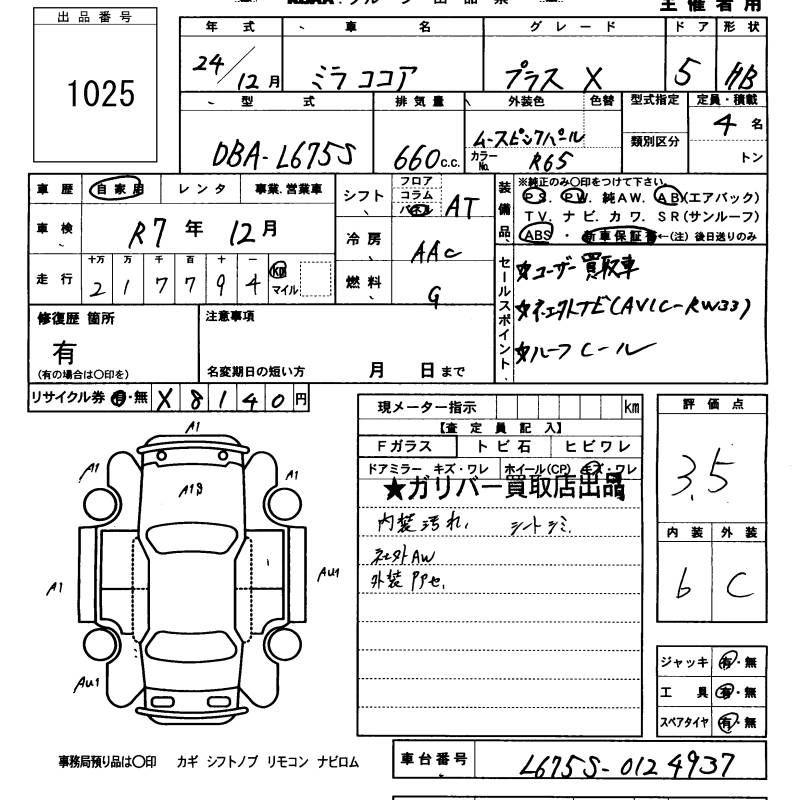 出品番号
1025
主催者用
年式 車名 グレード ドア 形状
24/12月 ミラココア プラス X 5 HB
型式 排気量 外装色 色替 型式指定 定員・積載
DBA-L675S 660c.c. ムースピンクパール 類別区分 4名
カラーNo. R65 トン
車歴 自家用 レンタ 事業.営業車
シフト フロア コラム パネル AT
装備品 ※純正のみ〇印をつけて下さい。
PS. PW. 純AW. AB(エアバック)
TV. ナビ. カワ. SR(サンルーフ)
ABS ・ 新車保証書 ←(注)後日送りのみ
車検 R7年 12月
冷房 AAC
走行 十万 万 千 百 十 一
2 1 7 7 9 4 km マイル
燃料 G
セールスポイント
☆ユーザー買取車
☆社外TE(AVIC-RW33)
☆ルーフレール
修復歴 箇所
有
(有の場合は〇印を)
注意事項
名変期日の短い方 月 日まで
リサイクル券 有・無 X 8 1 4 0 円
現メーター指示 km
【査定員記入】
Fガラス トビ石 ヒビワレ
ドアミラー キズ・ワレ ホイール(CP) キズ・ワレ
★ガリバー買取店出品
内装汚れ、 シートシミ.
社外AW
外装PPセ.
評価点
3.5
内装 外装
b C
A1
A1
A1
A1B
A1
AU1
AU1
ジャッキ 有・無
工具 有・無
スペアタイヤ 有・無
事務局預り品は〇印 カギ シフトノブ リモコン ナビロム
車台番号 L675S-0124937